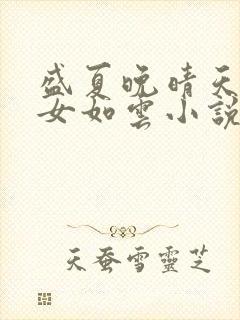 盛夏晚晴天
女如雲小說
天蚕雪靈芝